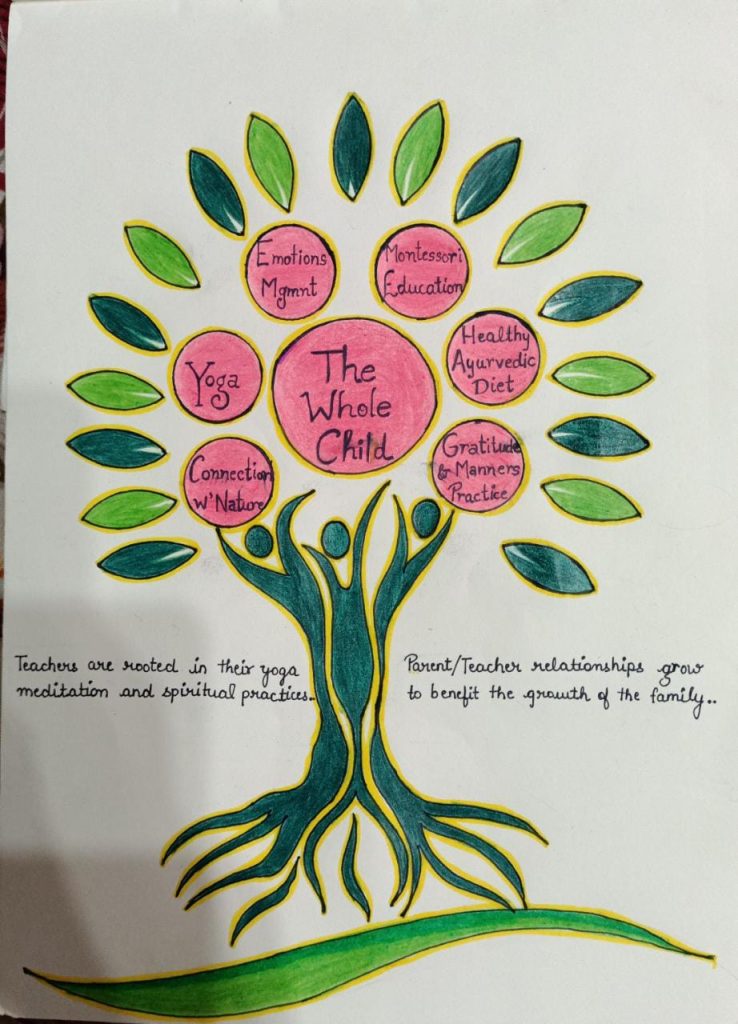 Emotions
Mgmnt
Montessori
Education
Yoga
The
Whole
Child
Healthy
Ayurvedic
Diet
Connection
W'Nature
Gratitude
& Manners
Practice
Teachers are rooted in their yoga
meditation and spiritual practices..
Parent/Teacher relationships grow
to benefit the growth of the family..